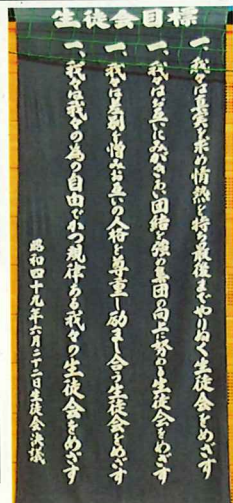 生徒会目標
一、我々は真実を求め情熱を持ち最後までやりぬく生徒会をめざす
一、我々はお互にみがき合い団結の強い集団の向上に努める生徒会をめざす
一、我々は差別を憎みお互いの人格を尊重し励まし合う生徒会をめざす
一、我々は我々の為の自由でかつ規律ある我々の生徒会をめざす
昭和四十九年六月二十二日生徒会決議